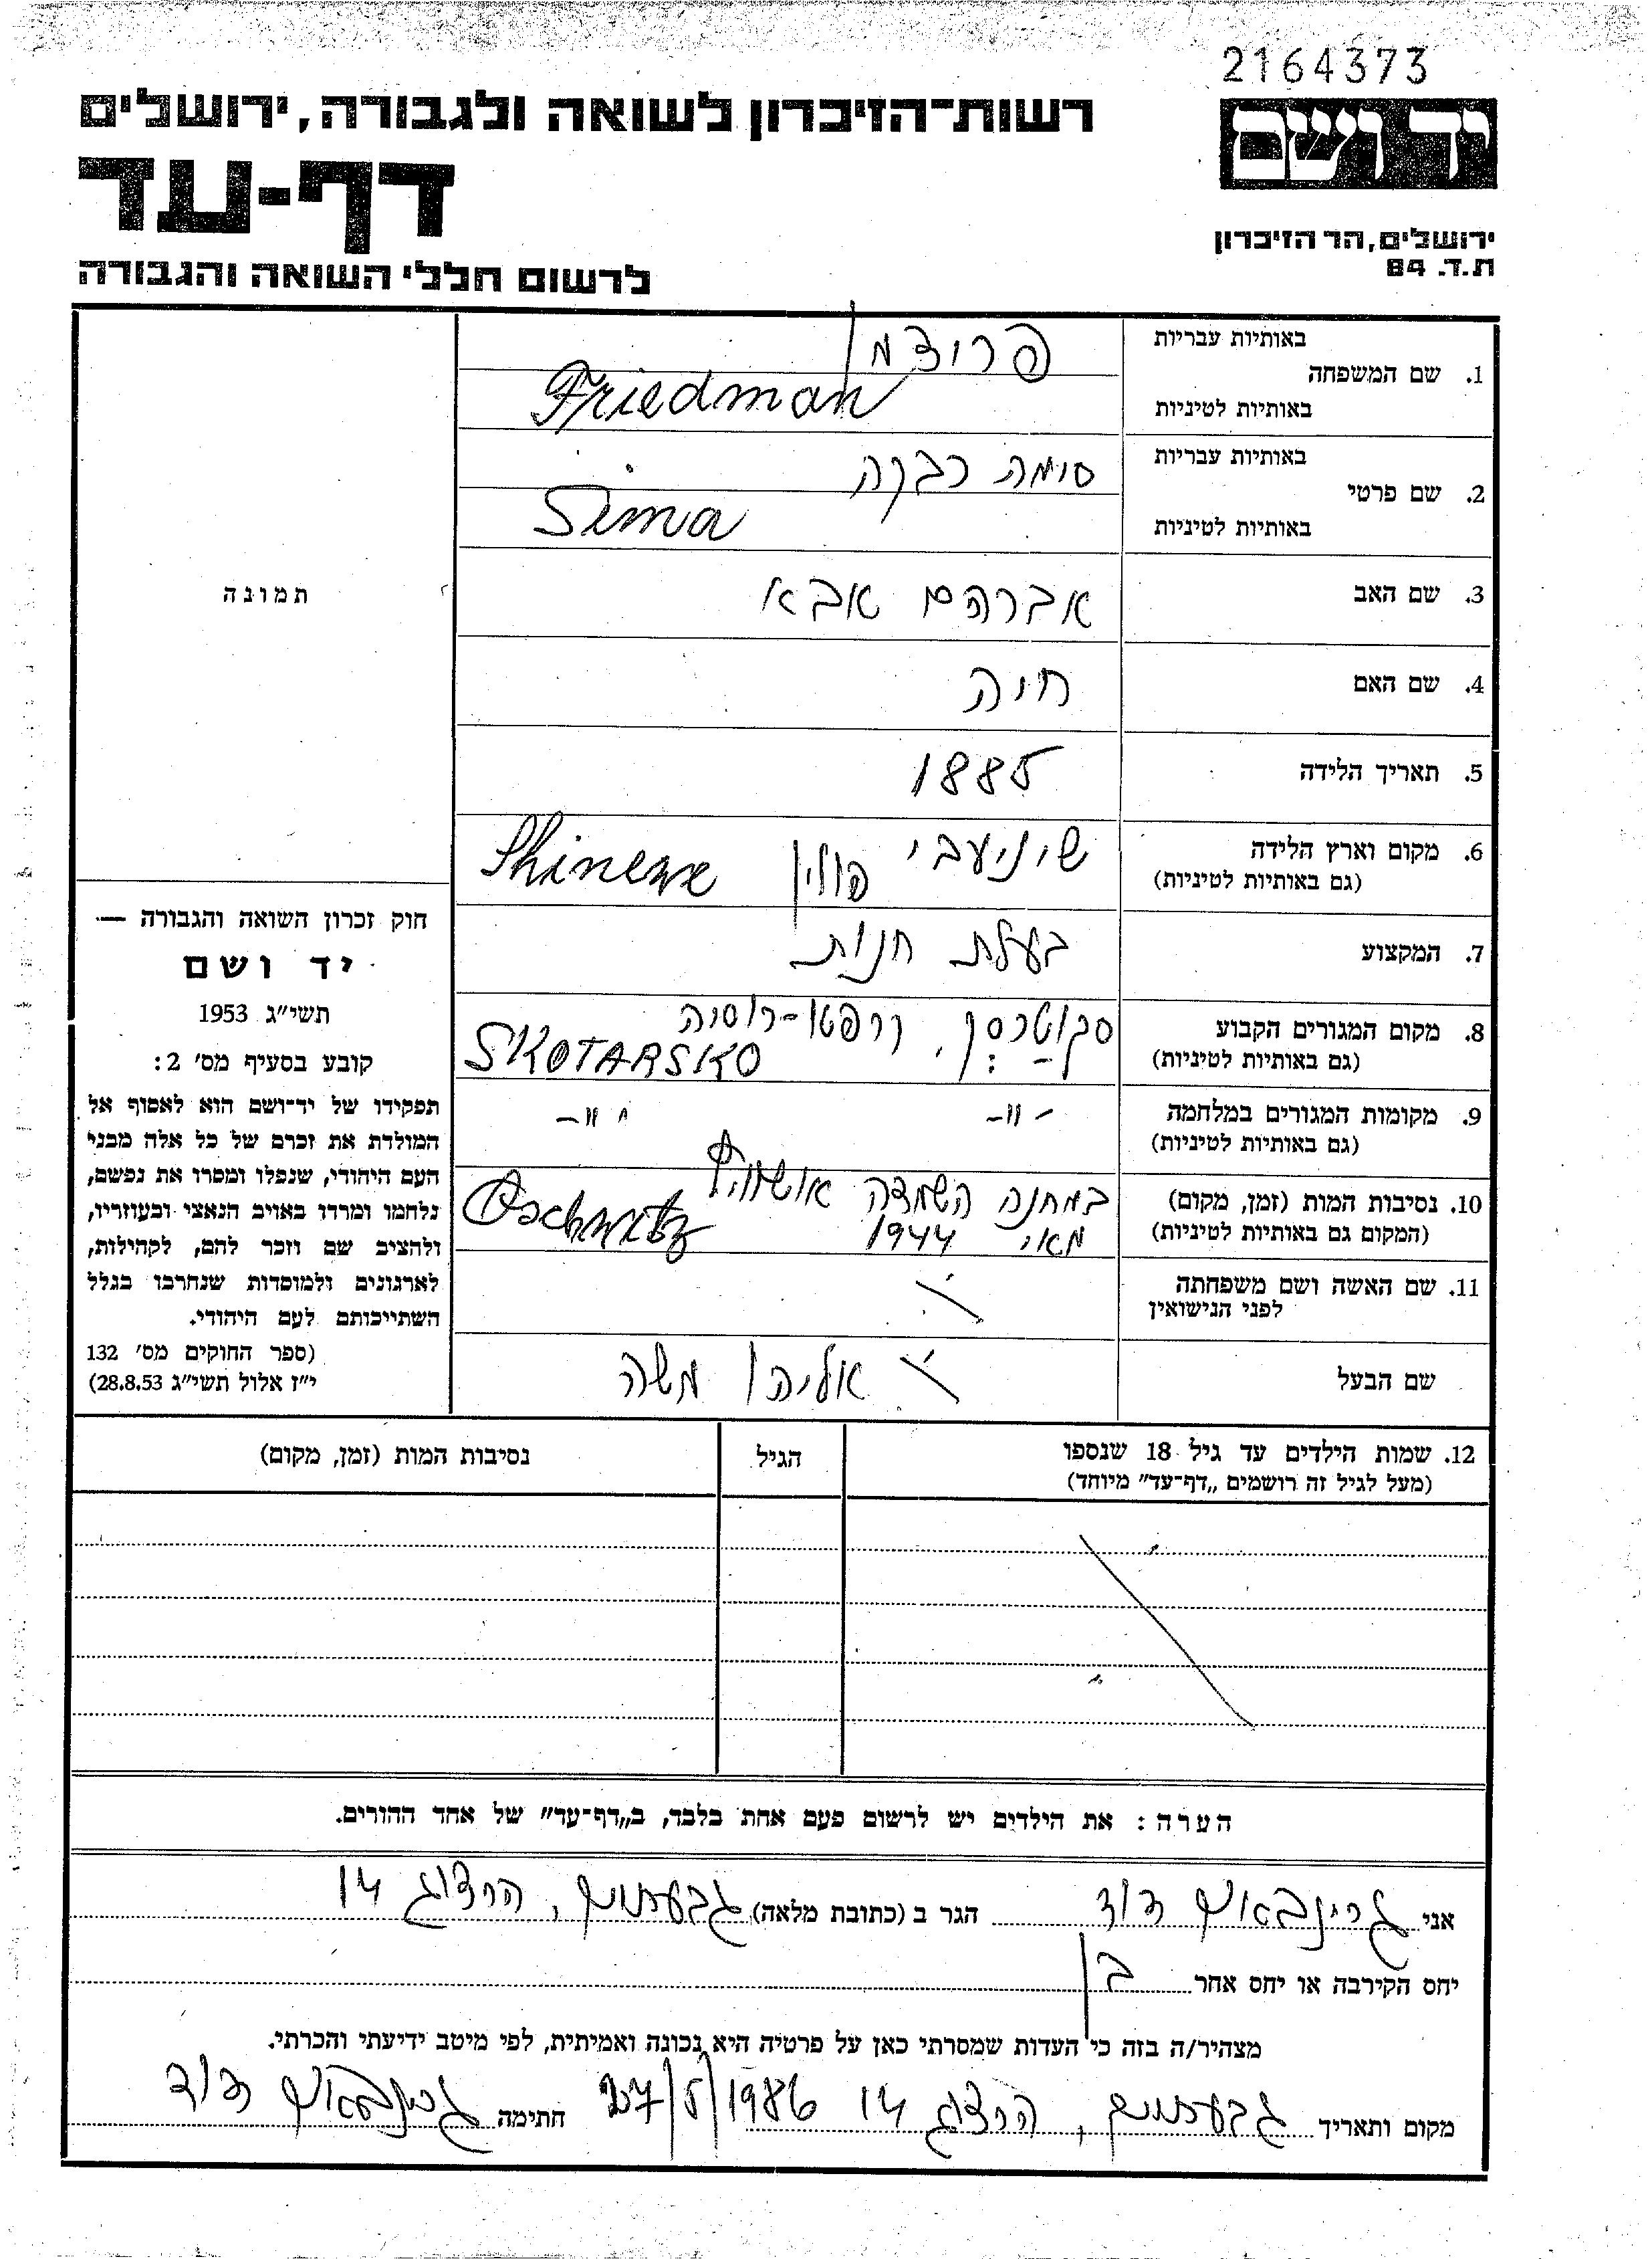 2164373
רשות־הזיכרון לשואה ולגבורה, ירושלים
יד ושם
דף-עד
ירושלים, הר הזיכרון
ת.ד. 84
לרשום חללי השואה והגבורה
באותיות עבריות
פרידמן
1. שם המשפחה
באותיות לטיניות
Friedman
באותיות עבריות
סימה רבקה
2. שם פרטי
באותיות לטיניות
Sima
3. שם האב
אברהם אבא
תמונה
4. שם האם
חיה
5. תאריך הלידה
1885
6. מקום וארץ הלידה
(גם באותיות לטיניות)
פולין
7. המקצוע
בעלת חנות
8. מקום המגורים הקבוע
(גם באותיות לטיניות)
SKOTARSKO
9. מקומות המגורים במלחמה
(גם באותיות לטיניות)
-"- -"-
10. נסיבות המות (זמן, מקום)
(המקום גם באותיות לטיניות)
במחנה השמדה אושוויץ
מאי 1944
11. שם האשה ושם משפחתה
לפני הנישואין
שם הבעל
משה
חוק זכרון השואה והגבורה —
יד ושם
תשי״ג 1953
קובע בסעיף מס׳ 2:
תפקידו של יד־ושם הוא לאסוף אל
המולדת את זכרם של כל אלה מבני
העם היהודי, שנפלו ומסרו את נפשם,
נלחמו ומרדו באויב הנאצי ובעוזריו,
ולהציב שם וזכר להם, לקהילות,
לארגונים ולמוסדות שנחרבו בגלל
השתייכותם לעם היהודי.
(ספר החוקים מס׳ 132
י״ז אלול תשי״ג 28.8.53)
12. שמות הילדים עד גיל 18 שנספו
(מעל לגיל זה רושמים „דף־עד״ מיוחד)
הגיל
נסיבות המות (זמן, מקום)
הערה: את הילדים יש לרשום פעם אחת בלבד, ב„דף־עד״ של אחד ההורים.
אני גרינבאום דוד הגר ב (כתובת מלאה) גבעתיים, הרצוג 14
יחס הקירבה או יחס אחר בן
מצהיר/ה בזה כי העדות שמסרתי כאן על פרטיה היא נכונה ואמיתית, לפי מיטב ידיעתי והכרתי.
מקום ותאריך גבעתיים, הרצוג 14 27/5/1986 חתימה גרינבאום דוד